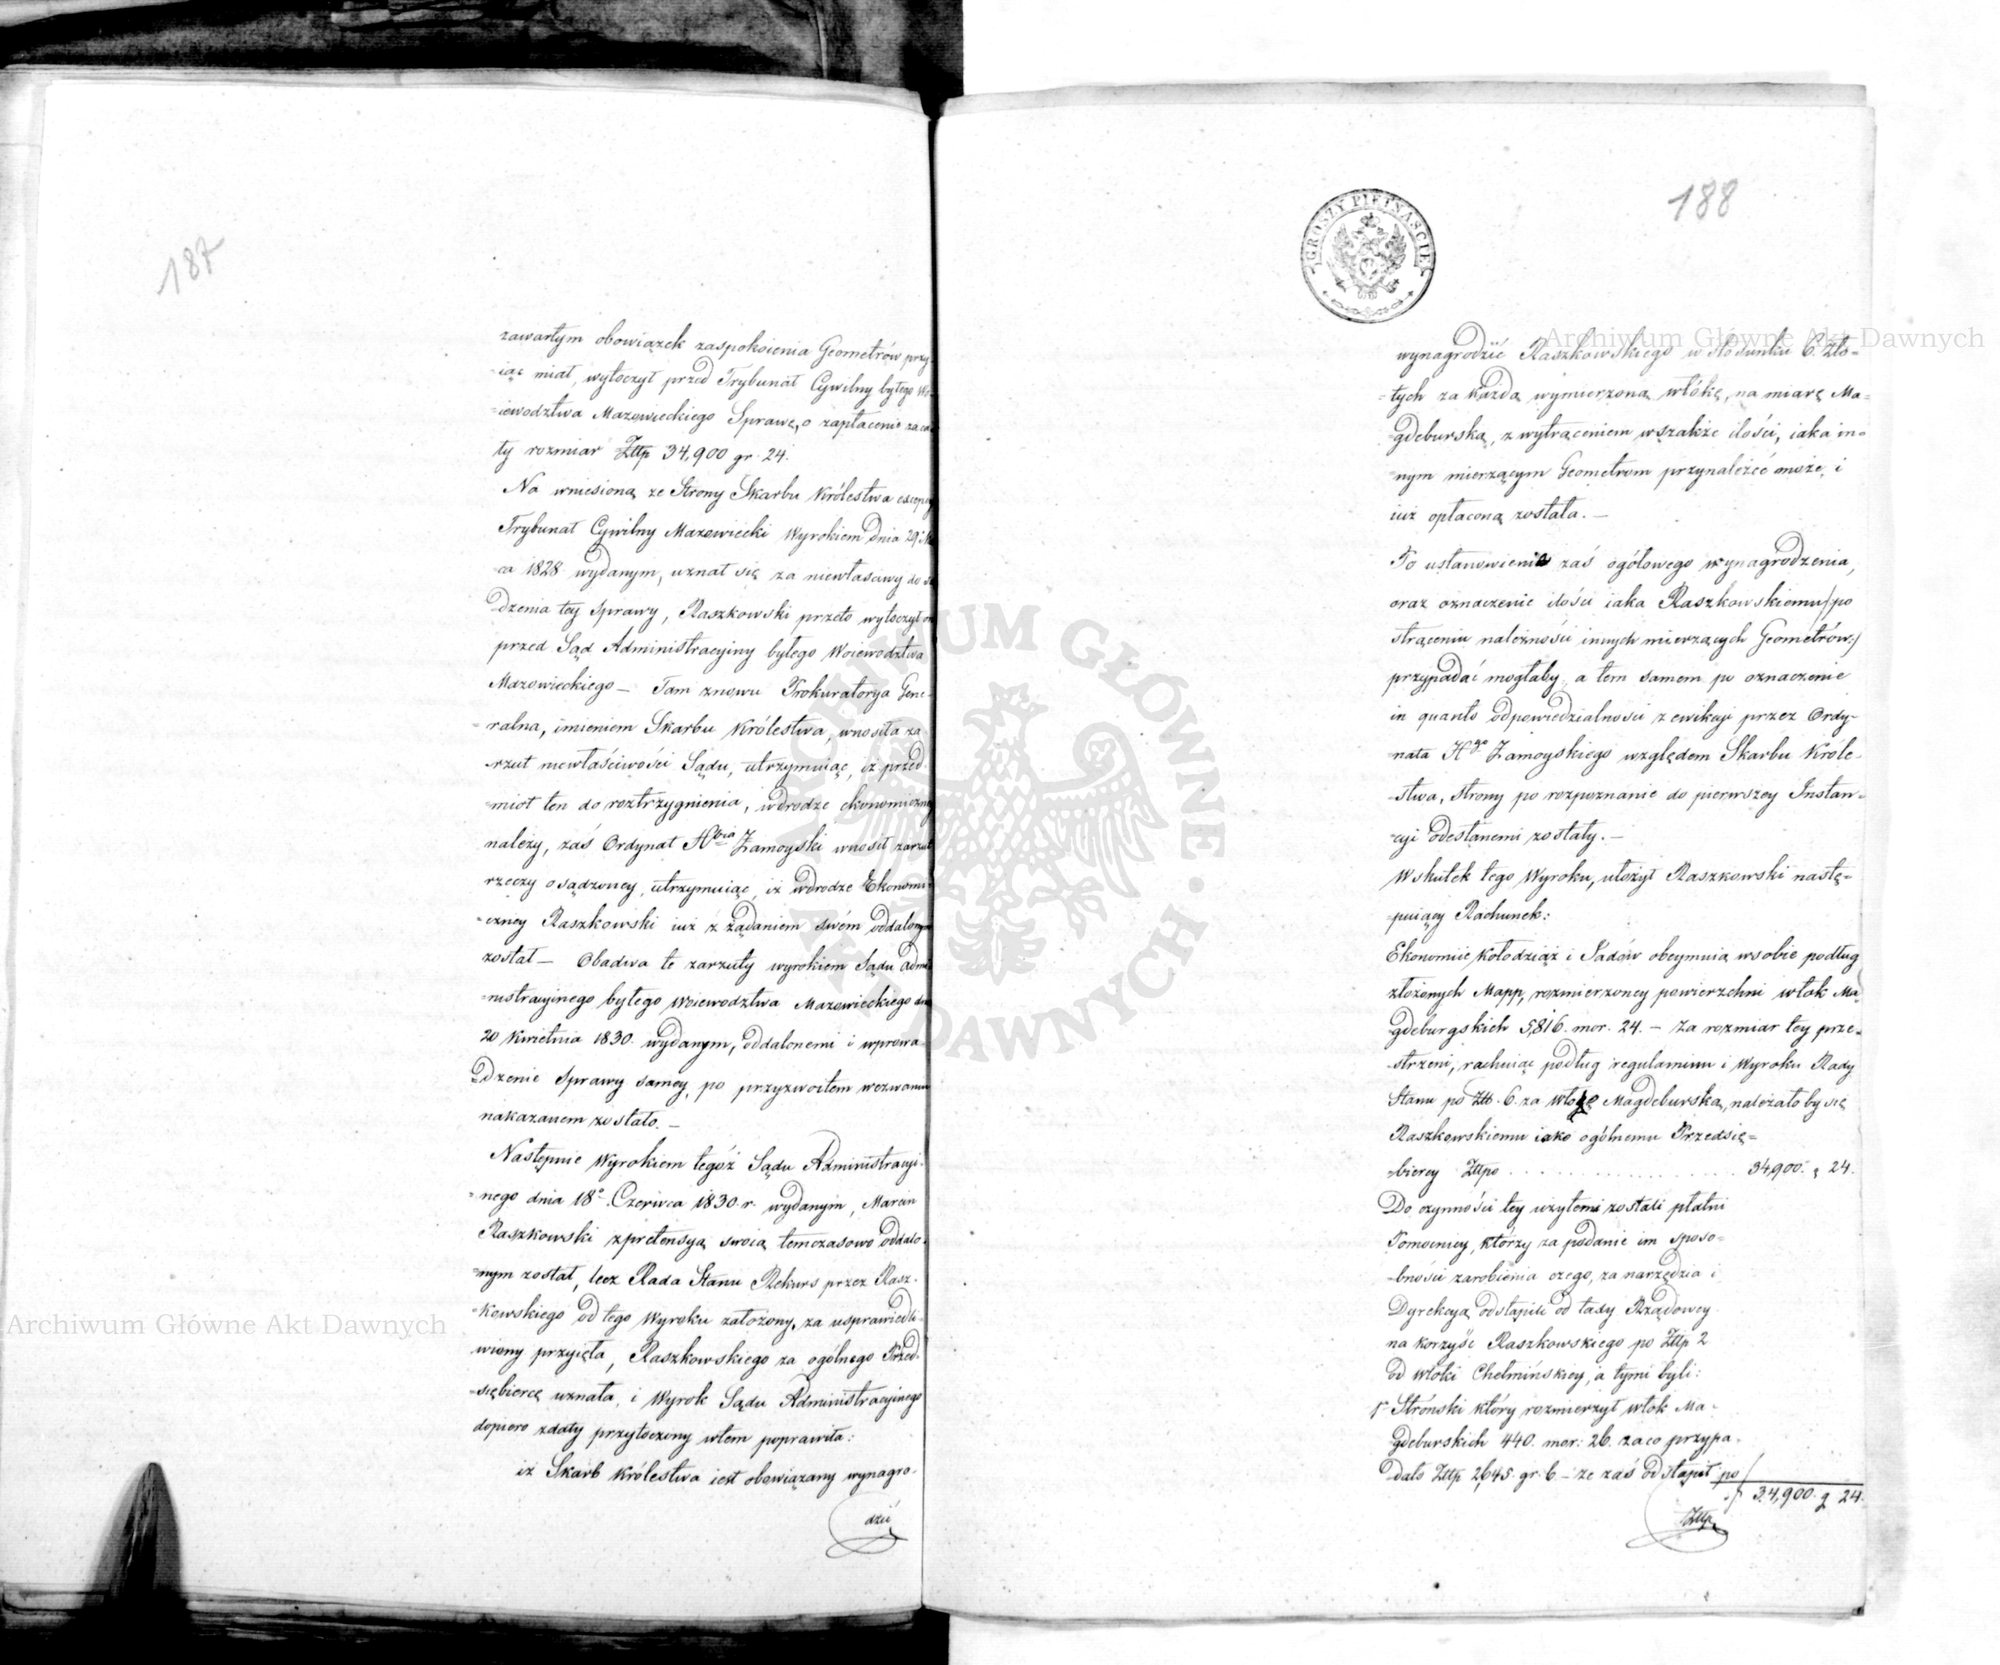 187
zawartym obowiązek zaspokoienia Geometrów przy-
-iąć miał, wytoczył przed Trybunał Cywilny byłego Wo-
-iewodztwa Mazowieckiego Sprawę, o zapłacenie za ca-
ły rozmiar Złtp 34,900 gr. 24.
Na wniesioną ze Strony Skarbu Królestwa
Trybunał Cywilny Mazowiecki Wyrokiem dnia 29
ca 1828 wydanym, uznał się za niewłaściwy do są
dzenia tey Sprawy, Raszkowski przeto wytoczył
przed Sąd Administracyiny byłego Woiewodztwa
Mazowieckiego – Tam znowu Prokuratorya Gene-
-ralna, imieniem Skarbu Królestwa, wnosiła za-
-rzut niewłaściwości Sądu, utrzymuiąc, iż przed-
-miot ten do roztrzygnienia, w drodze ekonomiczney
należy, zaś Ordynat Hbia Zamoyski wnosił zarzut
rzeczy osądzoney, utrzymuiąc, iż w drodze Ekonomi-
-czney Raszkowski iuż z żądaniem swém oddalonym
został – Obadwa te zarzuty wyrokiem Sądu Admi-
-nistracyinego byłego Woiewodztwa Mazowieckiego dnia
20 Kwietnia 1830. wydanym, oddalonemi i wprowa-
-dzenie Sprawy samey, po przyzwoitem wezwaniu
nakazanem zostało. –
Następnie Wyrokiem tegoż Sądu Administracyi-
-nego dnia 18º Czerwca 1830. r. wydanym, Marcin
Raszkowski z pretensyą swoią temczasowo oddalo-
-nym został, lecz Rada Stanu Rekurs przez Rasz-
-kowskiego od tego Wyroku założony, za usprawiedli-
wiony przyięła, Raszkowskiego za ogólnego Przed-
-siębiercę uznała, i Wyrok Sądu Administracyinego
dopiero z daty przytoczony w tem poprawiła:
iż Skarb Królestwa iest obowiązany wynagro-
dzić
GROSZY PIĘTNAŚCIE
188
wynagrodzić Raszkowskiego w stosunku 6. Zło-
-tych za każdą wymierzoną włókę, na miarę Ma-
-gdeburską, z wytrąceniem wszakże ilości, iaka in-
-nym mierzącym Geometrom przynależeć może, i
iuż opłaconą została. –
Po ustanowienie zaś ogółowego wynagrodzenia,
oraz oznaczenie ilości iaka Raszkowskiemu /:po
strąceniu należności innych mierzących Geometrów:/
przypadać mogłaby, a tem samem po oznaczenie
in quanto odpowiedzialności z ewikcyi przez Ordy-
-nata Hgo Zamoyskiego względem Skarbu Króle-
-stwa, strony po rozpoznanie do pierwszey Instan-
-cyi odesłanemi zostały. –
W skutek tego Wyroku, ułożył Raszkowski nastę-
-puiący Rachunek:
Ekonomiie Kołodziąż i Sadów obeymuią w sobie podług
złożonych Mapp, rozmierzoney powierzchni włók Ma-
gdeburgskich 5,816. mor. 24. – Za rozmiar tey prze-
-strzeni, rachuiąc podług regulaminu i Wyroku Rady
Stanu po Złt. 6. za włokę Magdeburską, należałoby się
Raszkowskiemu iako ogólnemu Przedsię-
-biercy Złtpo . . . . . . . . . . . . . . . . 34,900. g 24.
Do czynności tey użytemi zostali płatni
Pomocnicy, którzy za podanie im sposo-
-bności zarobienia czego, za narzędzia i
Dyrekcyą odstąpili od taxy Rządowey
na korzyść Raszkowskiego po Złtp 2
od włoki Chełmińskiey, a tymi byli:
1º Stróński który rozmierzył włok Ma-
gdeburskich 440. mor: 26. za co przypa-
dało Złtp 2,645. gr. 6 – że zaś odstąpił po
34,900. g 24.
Złtp.
Archiwum Główne Akt Dawnych
Archiwum Główne Akt Dawnych
Archiwum Główne Akt Dawnych
ARCHIWUM GŁÓWNE AKT DAWNYCH